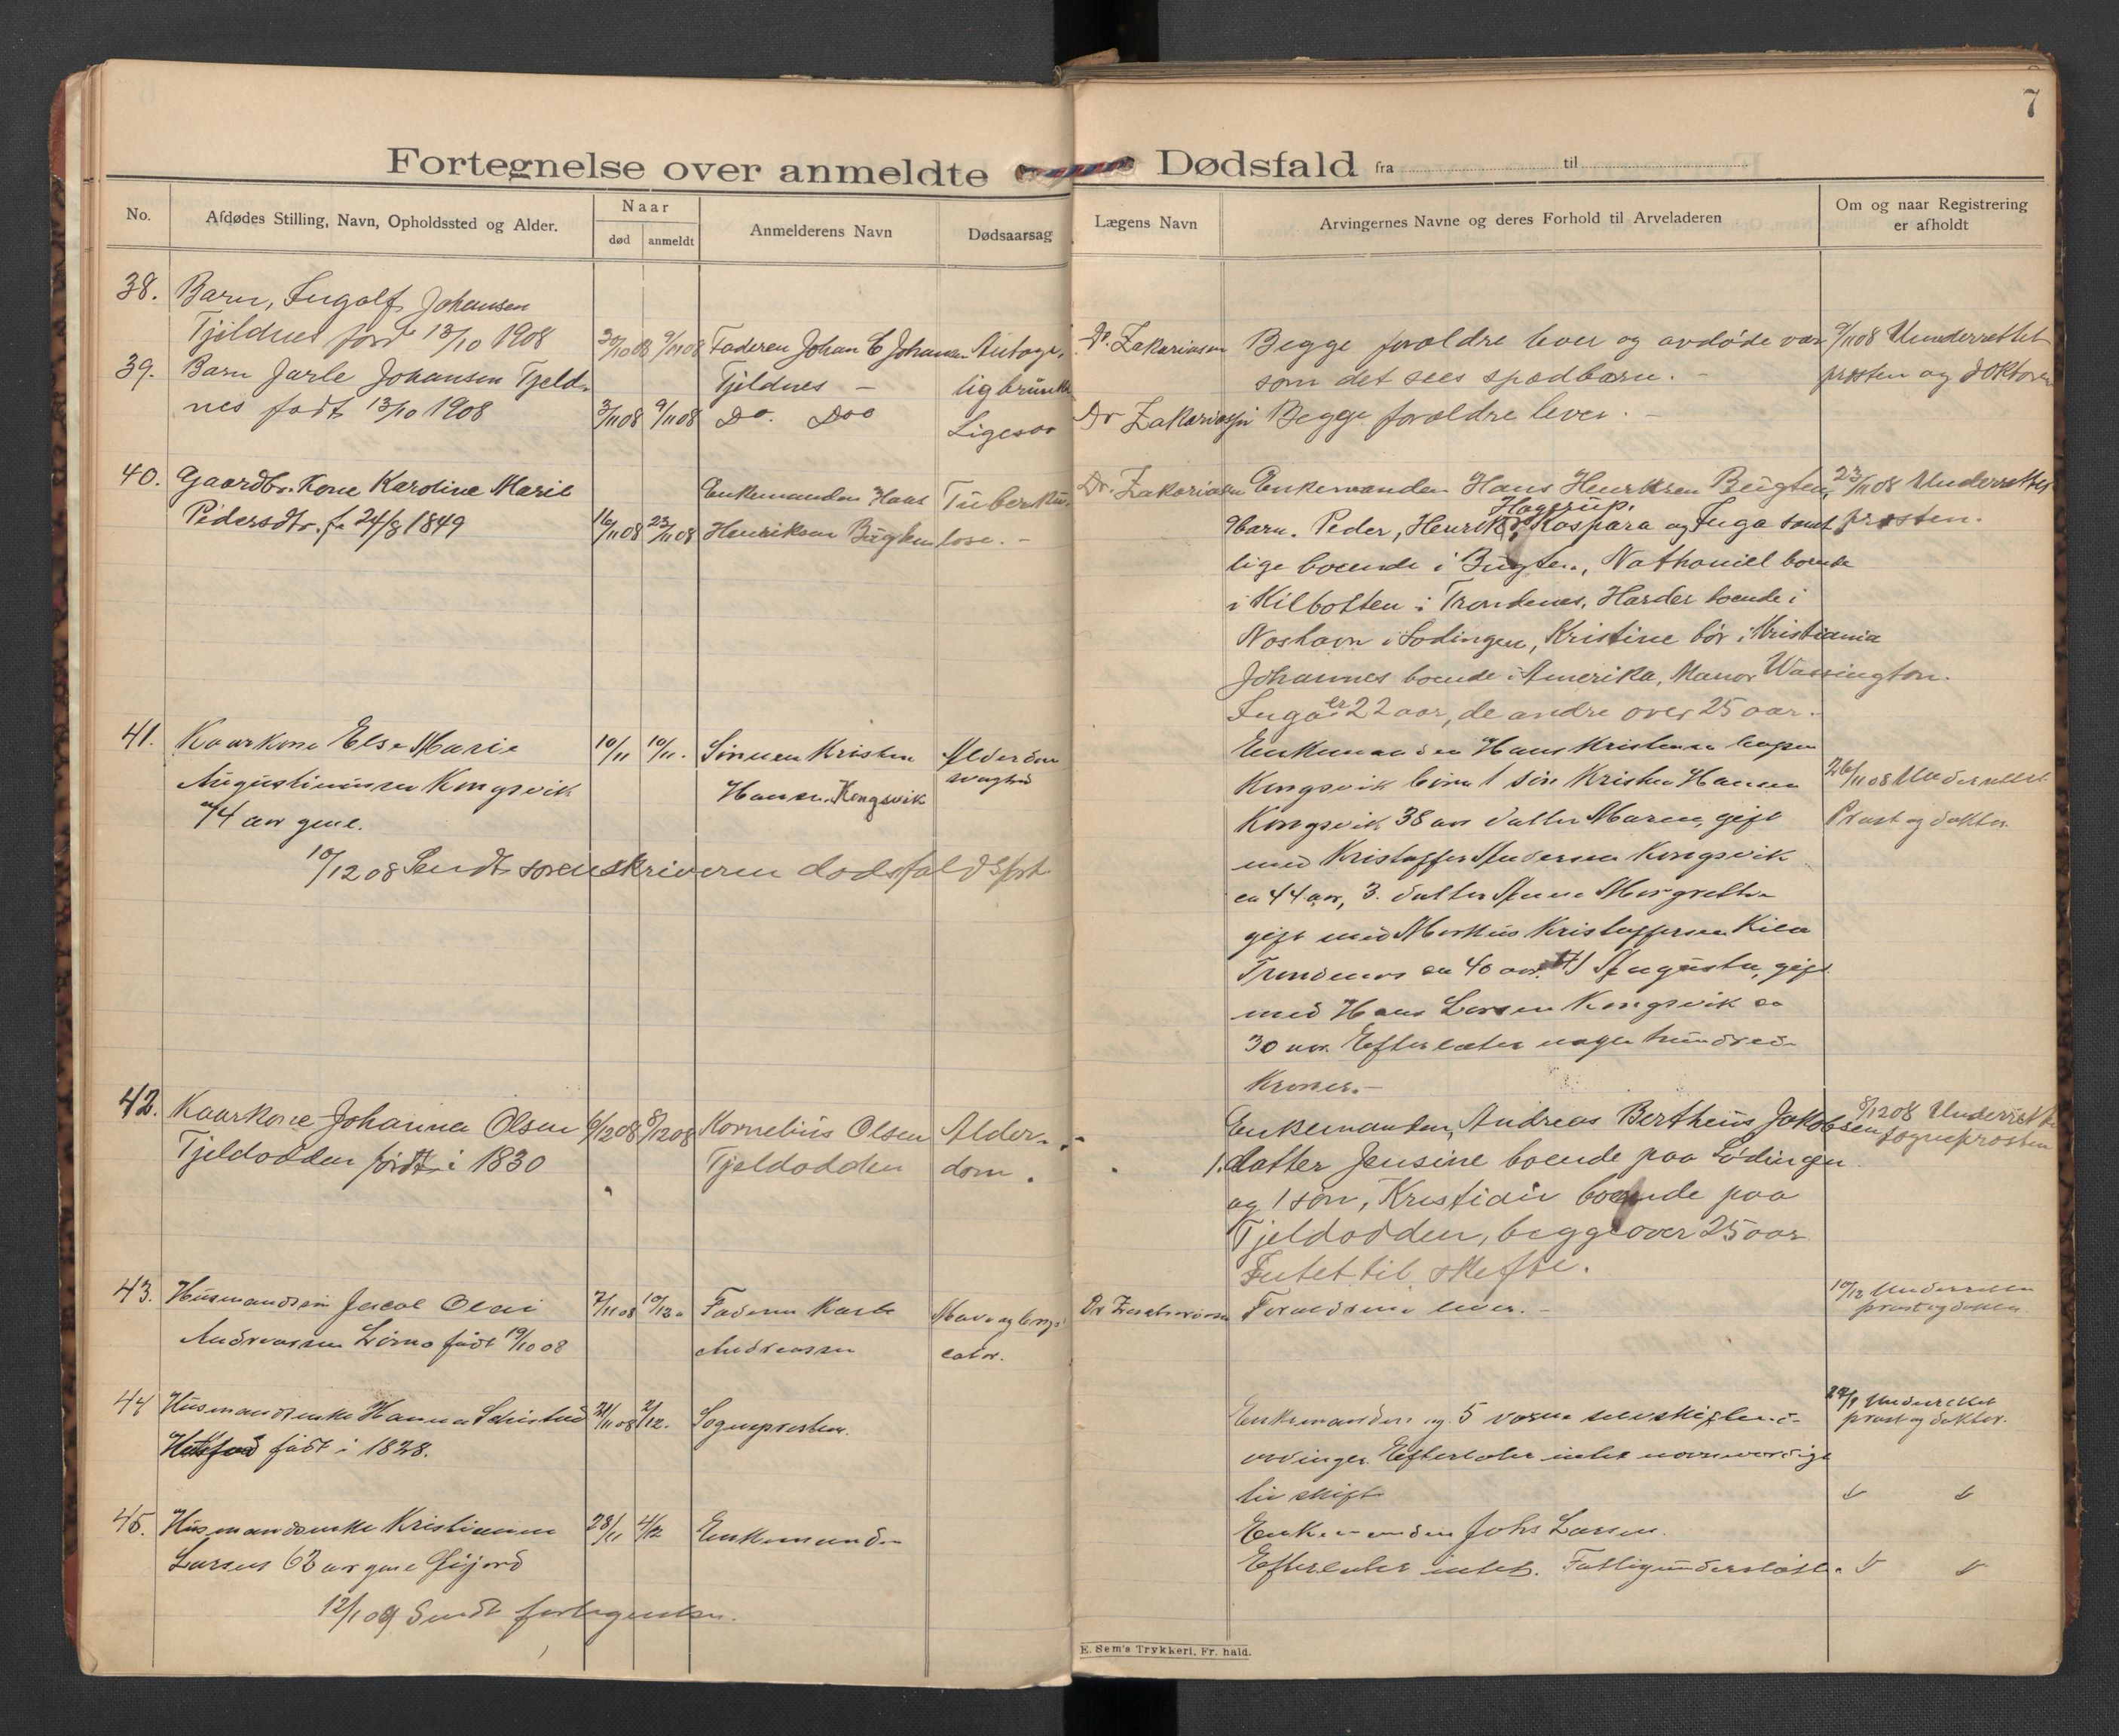 7
Fortegnelse over anmeldte Dødsfald fra til
No.
Afdødes Stilling, Navn, Opholdssted og Alder.
Naar
død anmeldt
Anmelderens Navn
Dødsaarsag
Lægens Navn
Arvingernes Navne og deres Forhold til Arveladeren
Om og naar Registrering
er afholdt
38. Barn, Ingolf Johansen
Tjeldnes født 13/10 1908 30/10 08 9/11 08 Faderen Johan E Johansen
Tjeldnes —
Dr. Zakariasen Begge forældre lever og avdøde var 9/11 08 Underrettet
som det sees spædbarn. - prosten og doktoren
39. Barn Jarle Johansen Tjeld-
nes født 13/10 1908 3/11 08 9/11 08 Do. Do Ligesaa
Dr Zakariassen Begge forældre lever. -
40. Gaardbr. Kone Karoline Marie
Pedersdtr. f. 24/8 1849 16/11 08 23/11 08 Enkemanden Hans
Henriksen Bugten
Tuberku-
lose. -
Dr. Zakariasen Enkemanden Hans Henriksen Bugten, 23/11 08 Underrettet
Hagerup.
9 barn. Peder, Henrik, Kaspara og Inga samt prosten.
lige boende i Bugten, Nathaniel boende
i Kilbotten i Trondenes, Harder boende i
i Lødingen, Kristine bor i Kristiania
Johannes boende i Amerika, Wassington.
Inga er 22 aar, de andre over 25 aar.
41. Kaarkone Else Marie
Augustinussen Kongsvik
74 aar gml.
10/11 10/11. Sønnen Kristen
Hansen Kongsvik
Alderdom
svaghed
10/12 08 Sendt sorenskriveren dødsfaldsfort.
Enkemanden Hans Kristensen
Kongsvik 1 søn Kristen Hansen 26/11 08 Underrettet
Kongsvik 38 aar datter Maren, gift Prost og doktor.
med Kristoffer Andersen Kongsvik
ca 44 aar, 3. datter Anne Margrethe
gift med Markus Kristoffersen
Trondenes ca 40 aar. 4) Augusta, gift
med Hans Larsen Kongsvik ca
30 aar. Efterlater nogle hundrede
Kroner. -
42. Kaarkone Johanna Olsen
Tjeldodden født i 1830
6/12 08 8/12 08 Kornelius Olsen
Tjeldodden
Alder-
dom.
Enkemanden, Andreas Bertheus Jakobsen 8/12 08 Underrettet
sogneprosten
1. datter Jensine boende paa Lødingen
og 1 søn, Kristian boende paa
Tjeldodden, begge over 25 aar
Intet til skifte.
43. Husmandssøn Olai
Andreassen født 19/10 08
7/11 08 10/12 Faderen
Andreassen
Dr Zachariassen Forældrene lever. - 10/12 Underrettet
prost og doktor.
44 Husmandsenke Hanna
født i 1828.
21/11 08 2/12. Sogneprosten.
Enkemanden og 5 voxne
Efterlater intet nævneværdigt
til skifte
Underrettet
prost og doktor.
45. Husmandsenke
Larsen 63 aar gml
28/11 4/12 Enkemanden
Enkemanden Johs Larsen.
Efterlater intet. Fattigunderstøttet.
12/1 09 Sendt fortegnelsen.
E. Sem's Trykkeri, Fr. hald.